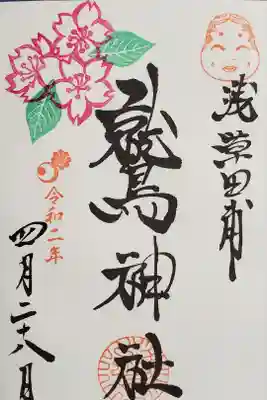 浅草田甫
鷲神社
令和二年
四月二十八日